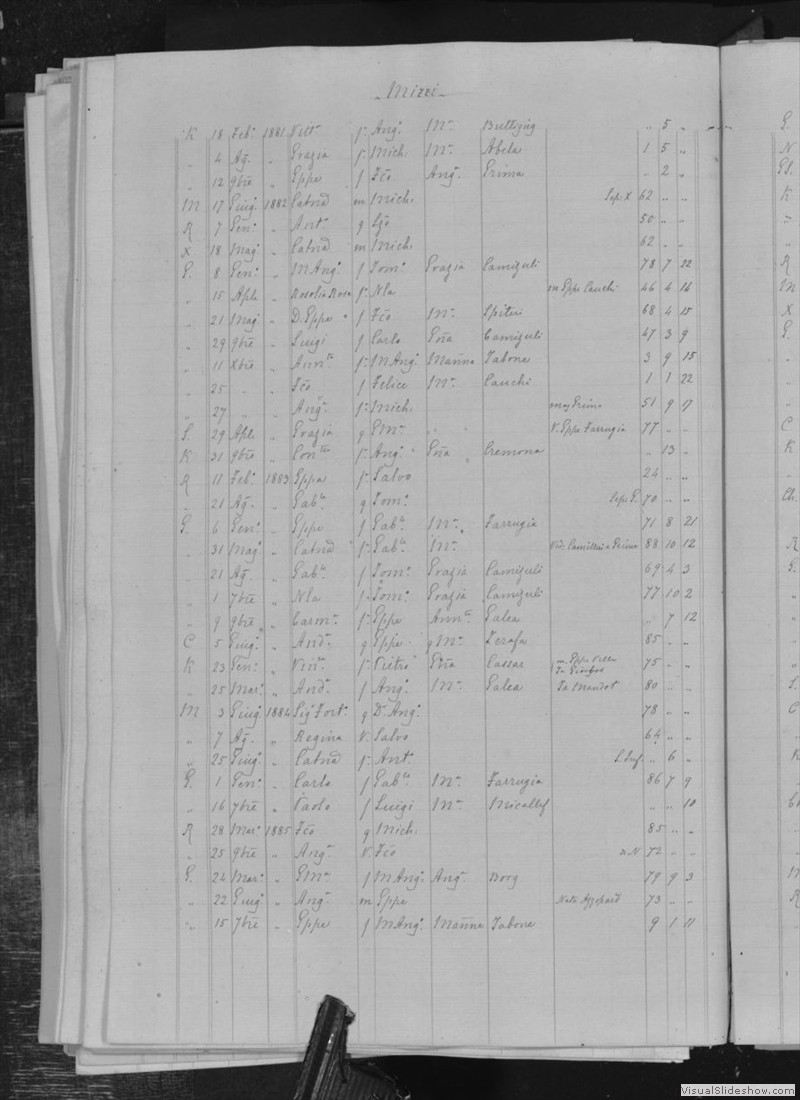 Mizzi
K 18 Feb. 1881 Vitt. f. Ang. Mr. Buttigieg „ 5 „
„ 4 Ag. „ Grazia f. Mich. Mr. Abela 1 5 „
„ 12 9bre „ Eppe f Fco Ang. Grima „ 2 „
M 17 Giug. 1882 Catnd m Mich. Sep. X 62 „ „
R 7 Gen. „ Ant. g 50 „ „
X 18 Mag. „ Catnd m Mich. 62 „ „
G. 8 Gen. „ M Ang. f Tom. Grazia Camizuli 78 7 22
„ 15 Aple „ Rosolia Rosa f. Nla m Eppe Cauchi 46 4 16
„ 21 Mag. „ D. Eppe f Fco Mr. Spiteri 68 4 15
„ 29 9bre „ Luigi f Carlo Gña Camizuli 47 3 9
„ 11 Xbre „ Annlla f. M Ang. Mañna Tabone 3 9 15
„ 25 „ „ Fco f Felice Mr. Cauchi 1 1 22
„ 27 „ „ Ang. f. Mich. Grima 51 9 17
S. 29 Aple „ Grazia g Mr. „ „ V. Eppe Farrugia 77 „ „
K 31 9bre „ f. Ang. Gña Cremona „ 13 „
R 11 Feb. 1883 Eppa f. Salvo 24 „ „
„ 21 Ag. „ Gab. g Tom. Sep. G. 70 „ „
G. 6 Gen. „ Eppe f Gab. Mr. Farrugia 71 8 21
„ 31 Mag. „ Catnd f. Gab. Mr. Grima 88 10 12
„ 21 Ag. „ Gab. f Tom. Grazia Camizuli 69 4 3
„ 1 7bre „ Nla f. Tom. Grazia Camizuli 77 10 2
„ 9 9bre „ Carm. f. Eppe Galea „ 7 12
C 5 Giug. „ And. g Eppe g Mr. Zerafa 85 „ „
K 23 Gen. „ f. Pietro Gña Cassar m Eppe Vella 75 „ „
„ 25 Mar. „ And. f Ang. Mr. Galea Ta Mandot 80 „ „
M 3 Giug. 1884 Sig. Fort. g Dr. Ang. 78 „ „
„ 7 Ag. „ Regina V. Salvo 64 „ „
„ 25 Giug. „ Catnd f. Ant. „ 6 „
G. 1 Gen. „ Carlo f Gab. Mr. Farrugia 86 7 9
„ 16 7bre „ Paolo f Luigi Mr. Micallef „ „ 10
R 28 Mar. 1885 Fco g Mich. 85 „ „
„ 25 9bre „ Ang. V. Fco 72 „ „
G. 24 Mar. „ f M Ang. Ang. Borg 79 9 3
„ 22 Giug. „ Ang. m Eppe Nata Azzopard 73 „ „
„ 15 7bre „ Eppe f M Ang. Mañna Tabone 9 1 11
VisualSlideshow.com